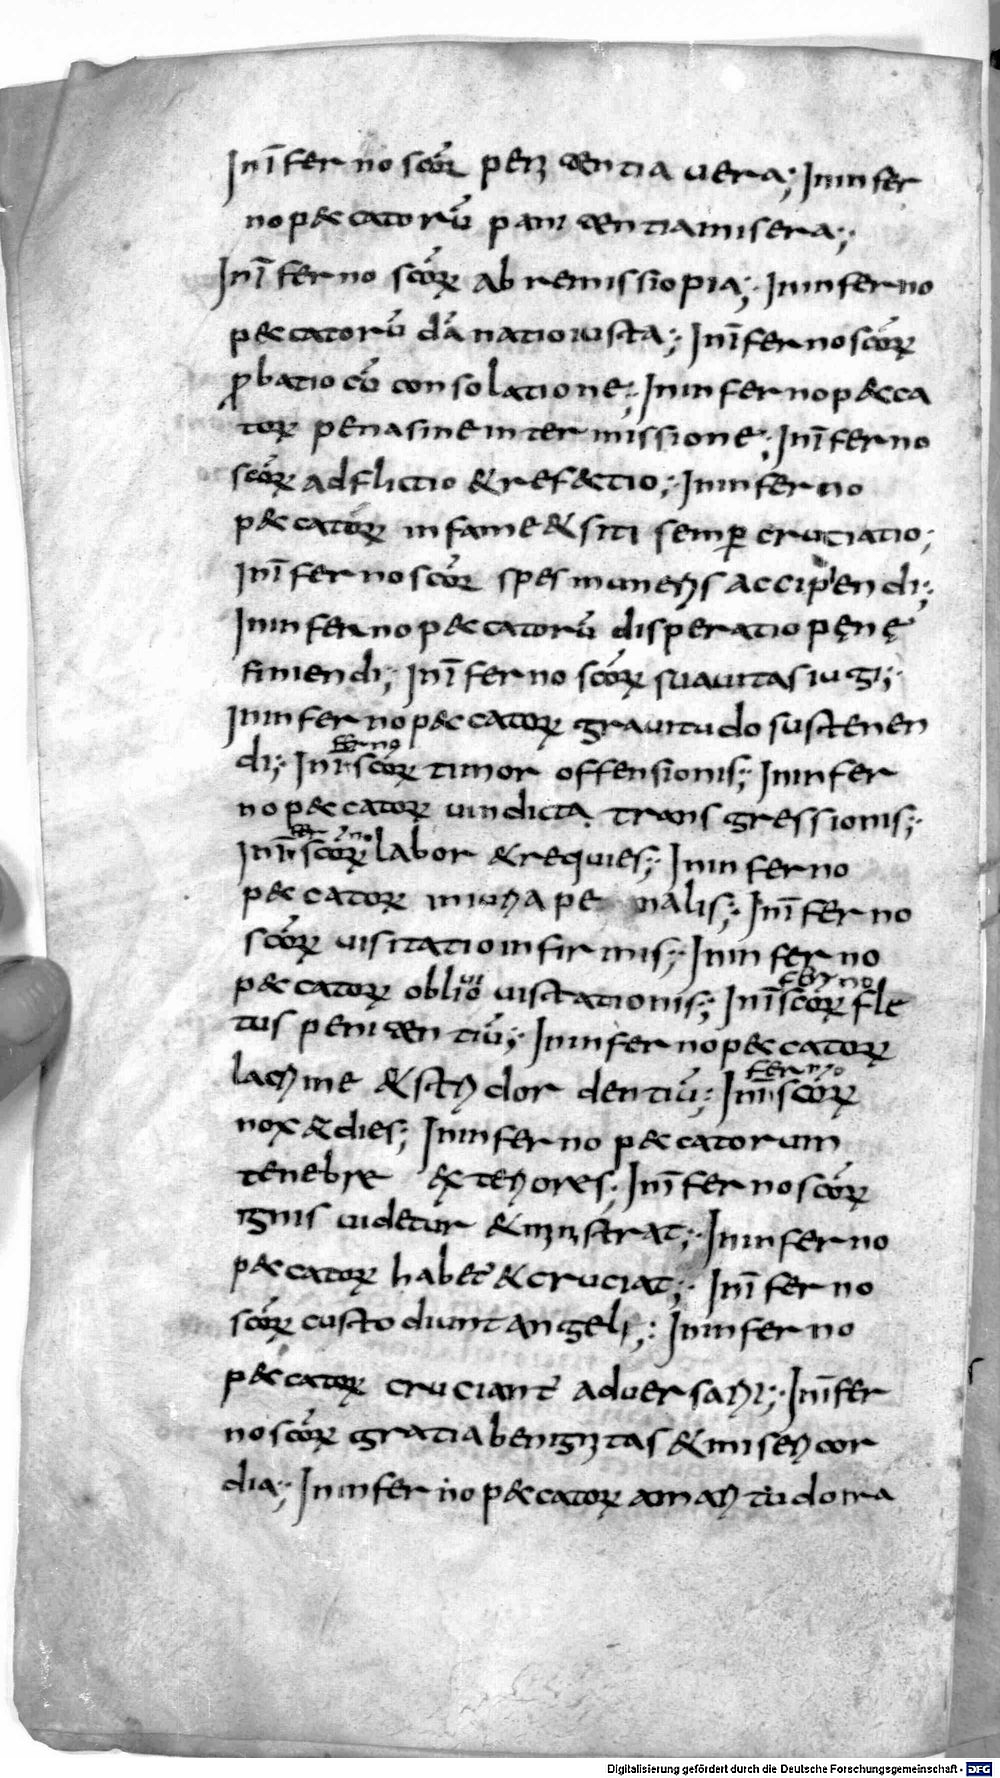 Inĩ ferno scōꝝ penitentia uera; In infer
no peccatorū paenitentia misera;
Inĩ ferno scōꝝ ab remissio pia; In inferno
peccatorū dānatio iusta; Inĩ ferno scōꝝ
ꝓbatio cū consolatione; In inferno pecca
toꝝ pena sine intermissione; Inĩ ferno
scōꝝ adflictio & refectio; In inferno
peccatoꝝ in fame & siti semꝑ cruciatio;
Inĩ ferno scōꝝ spes muneris accipiendi;
In inferno peccatorū disperatio pęnę
finiendi; Inĩ ferno scōꝝ suauitas iugi;
In inferno peccatoꝝ grauitudo sustenen
di; Inĩferno scōꝝ timor offensionis; In infer
no peccatoꝝ uindicta transgressionis;
Inĩferno scōꝝ labor & requies; In inferno
peccatoꝝ penalis; Inĩ ferno
scōꝝ uisitatio infirmis; In inferno
peccatoꝝ obliuio uisitationis; Inĩferno scōꝝ fle
tus penitentiū; In inferno peccatoꝝ
lacrime & stridor dentiū; Inĩferno scōꝝ
nox & dies; In inferno peccatorum
tenebrę exteriores; Inĩ ferno scōꝝ
ignis uidetur & ministrat; In inferno
peccatoꝝ habet̄ & cruciat; Inĩ ferno
scōꝝ custodiunt angeli; In inferno
peccatoꝝ cruciant̄ aduersarii; Inĩ fer
no scōꝝ gratia benignitas & misericor
dia; In inferno peccatoꝝ amaritudo ira
Digitalisierung gefördert durch die Deutsche Forschungsgemeinschaft - DFG